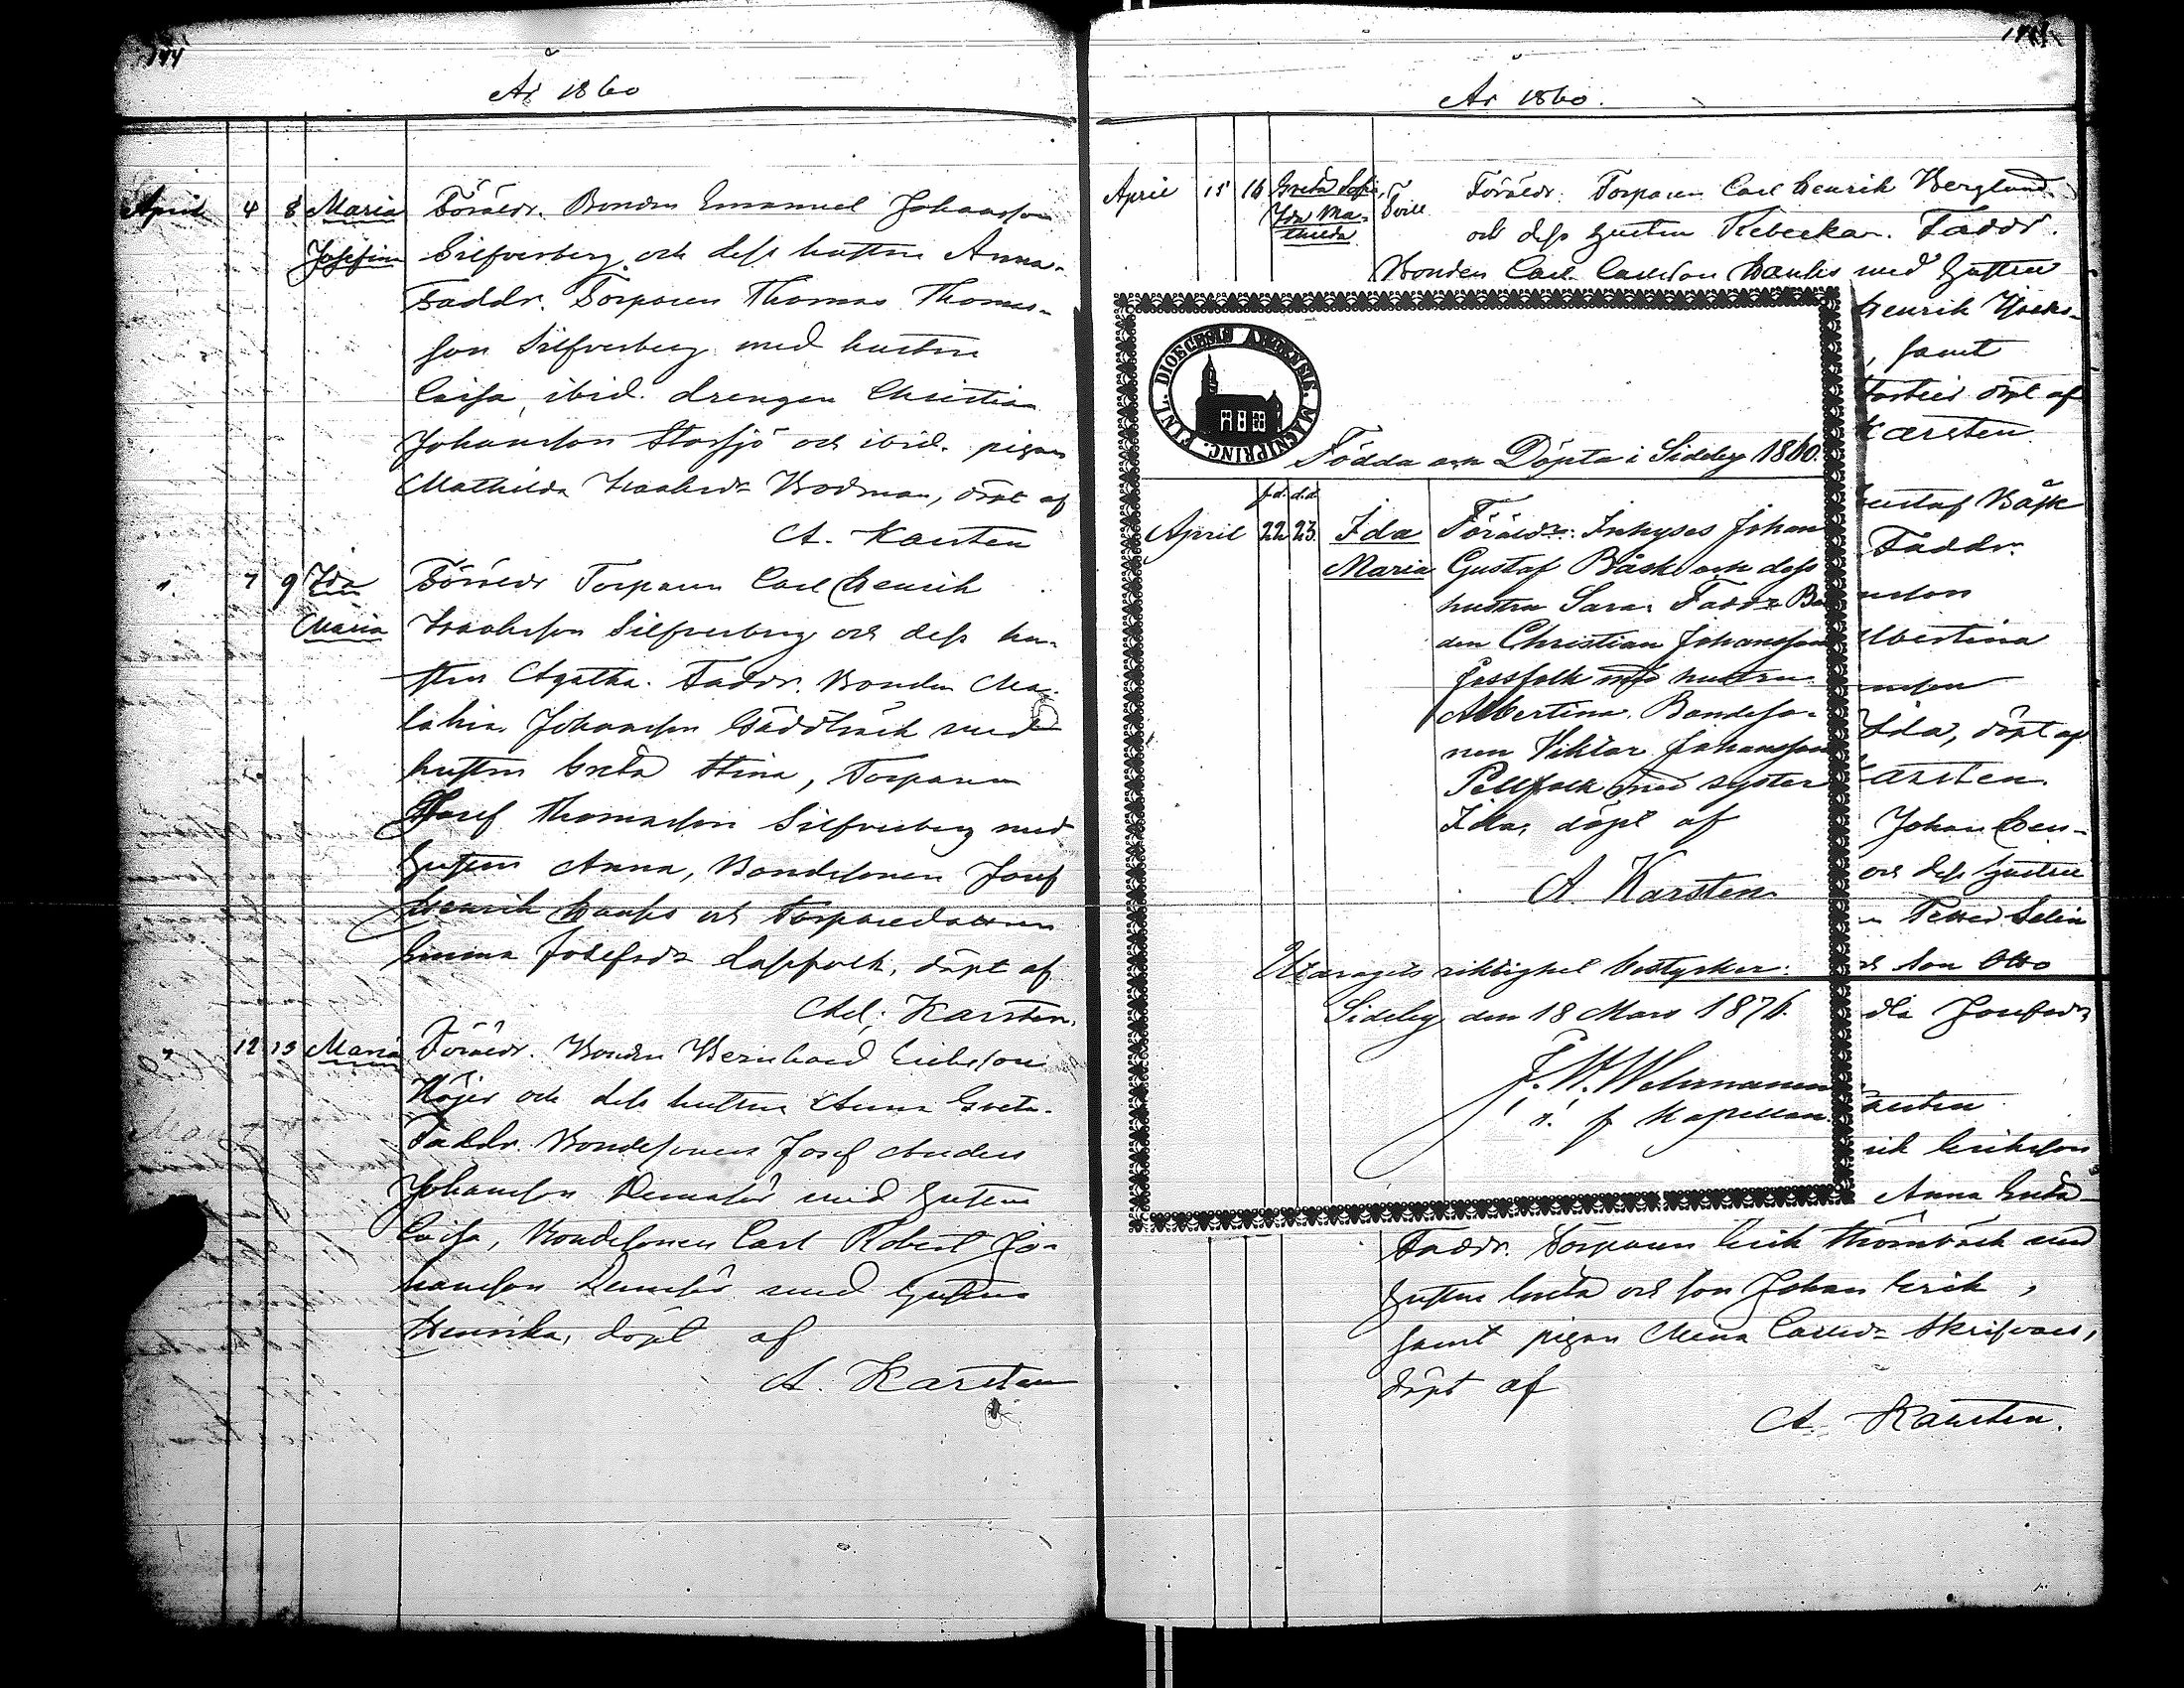 144
År 1860
April 4 8 Maria Föräldr. Bonden Emanuel Johansson
Josefina Silfverberg och dess hustru Anna.
Faddr. Torparen Thomas Thomas-
son Silfverberg med hustru
Caisa, ibid. drengen Christian
Johansson Storsjö och ibid. pigan
Mathilda Isaksdr Bodman, döpt af
A. Karsten
" 7 9 Ida Föräldr Torparen Carl Henrik
Maria Isaksson Silfverberg och dess hu-
stru Agatha. Faddr. Bonden
Johansson med
hustru Greta Stina, Torparen
Josef Thomasson Silfverberg med
hustru Anna, Bondesonen Josef
Henrik och Torparedottren
Emma Josefsdr Lappfolk, döpt af
Ad. Karsten.
" 12 13 Maria Föräldr. Bonden Bernhard Ericksson
Höijer och dess hustru Anna Greta.
Faddr. Bondesonen Josef Anders
Johansson med hustru
Caisa, Bondesonen Carl Robert Jo-
hansson med hustru
Henrika, döpt af
A. Karsten
År 1860.
April 15 16 Greta Sofia, Föräldr. Torparen Carl Henrik Berglund
Ida Ma- Tvill.
thilda och dess hustru Rebecka. Faddr.
Bonden Carl Carlsson med hustru
Henrik
, samt
döpt af
Karsten
DIOECESIS ABOENSIS. MAGNIPRINC. FINL.
Födda och Döpta i Sideby 1860.
f.d. d.d.
April 22 23. Ida Föräldr: Inhyses Johan
Maria Gustaf Båsk och dess
hustru Sara. Faddr Bo
den Christian Johansson
Jossfolk med hustru
Albertina. Bondeso-
nen Viktor Johansson
Pellfolk med syster
Ida, döpt af
A. Karsten
Utdragets riktighet bestyrker:
Sideby den 18 Mars 1876.
Kapellan.
Gustaf Båsk
Faddr.
nsson
lbertina
nsson
Ida, döpt af
arsten.
Johan Hen-
och dess hustru
Petter Selin
son Otto
Josefsdr
arsten
rik Eriksson
Anna Greta
Faddr. Torparen Erik Strömbäck med
hustru Greta och son Johan Erik,
samt pigan Anna Carlsdr Skrifvars,
döpt af
A. Karsten.